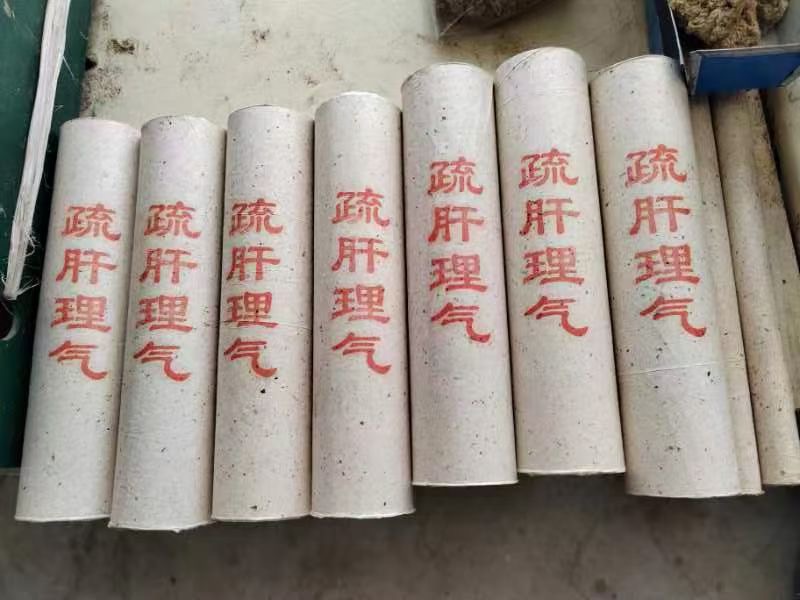 疏肝理气
疏肝理气
疏肝理气
疏肝理气
疏肝理气
疏肝理气
疏肝理气